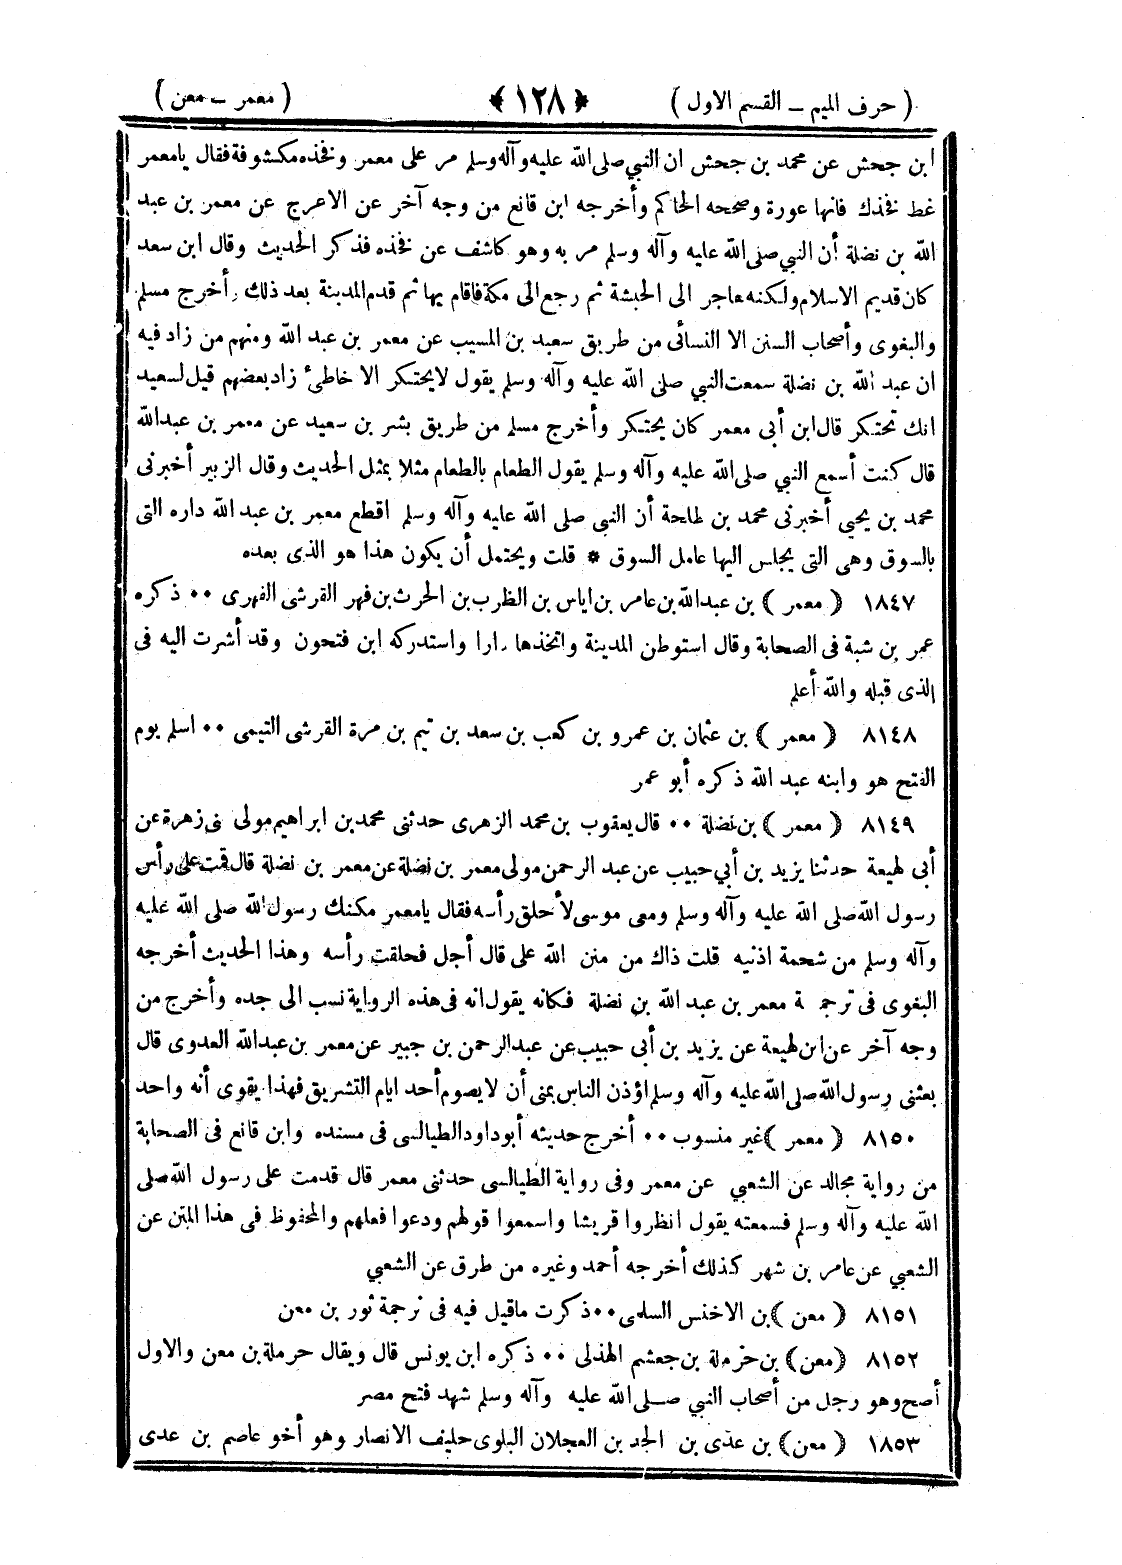 ( حرف الميم – القسم الاول ) ﴿ ١٢٨ ﴾ ( معمر – معن )
ابن جحش عن محمد بن جحش ان النبي صلى الله عليه وآله وسلم مر على معمر وفخذه مكشوفة فقال يامعمر
غط فخذك فانها عورة وصححه الحاكم وأخرجه ابن قانع من وجه آخر عن الاعرج عن معمر بن عبد
الله بن نضلة أن النبي صلى الله عليه وآله وسلم مر به وهو كاشف عن فخذه فذكر الحديث وقال ابن سعد
كان قديم الاسلام ولكنه هاجر الى الحبشة ثم رجع الى مكة فاقام بها ثم قدم المدينة بعد ذلك وأخرج مسلم
والبغوى وأصحاب السنن الا النسائى من طريق سعيد بن المسيب عن معمر بن عبد الله ومنهم من زاد فيه
ان عبد الله بن نضلة سمعت النبي صلى الله عليه وآله وسلم يقول لايحتكر الا خاطئ زاد بعضهم قيل لسعيد
انك تحتكر قال ابن أبي معمر كان يحتكر وأخرج مسلم من طريق بشر بن سعيد عن معمر بن عبدالله
قال كنت أسمع النبي صلى الله عليه وآله وسلم يقول الطعام بالطعام مثلا بمثل الحديث وقال الزبير أخبرنى
محمد بن يحيى أخبرنى محمد بن طلحة أن النبي صلى الله عليه وآله وسلم اقطع معمر بن عبد الله داره التى
بالسوق وهى التى يجلس اليها عامل السوق * قلت ويحتمل أن يكون هذا هو الذى بعده
١٨٤٧ ( معمر ) بن عبدالله بن عامر بن اياس بن الظرب بن الحرث بن فهر القرشى الفهرى ۰۰ ذكره
عمر بن شبة فى الصحابة وقال استوطن المدينة واتخذها دارا واستدركه ابن فتحون وقد أشرت اليه فى
الذى قبله والله أعلم
٨١٤٨ ( معمر ) بن عثمان بن عمرو بن كعب بن سعد بن تيم بن مرة القرشى التيمى ۰۰ اسلم يوم
الفتح هو وابنه عبد الله ذكره أبو عمر
٨١٤٩ ( معمر ) بن نضلة ۰۰ قال يعقوب بن محمد الزهرى حدثنى محمد بن ابراهيم مولى بنى زهرة عن
أبى لهيعة حدثنا يزيد بن أبي حبيب عن عبد الرحمن مولى معمر بن نضلة عن معمر بن نضلة قال قمت على رأس
رسول الله صلى الله عليه وآله وسلم ومعى موسى لأحلق رأسه فقال يامعمر مكنك رسول الله صلى الله عليه
وآله وسلم من شحمة اذنيه قلت ذاك من منن الله على قال أجل فحلقت رأسه وهذا الحديث أخرجه
البغوى فى ترجمة معمر بن عبد الله بن نضلة فكانه يقول انه فى هذه الرواية نسب الى جده وأخرج من
وجه آخر عن ابن لهيعة عن يزيد بن أبى حبيب عن عبدالرحمن بن جبير عن معمر بن عبدالله العدوى قال
بعثنى رسول الله صلى الله عليه وآله وسلم اؤذن الناس بمنى أن لا يصوم أحد ايام التشريق فهذا يقوى أنه واحد
٨١٥٠ ( معمر ) غير منسوب ۰۰ أخرج حديثه أبو داود الطيالسى فى مسنده وابن قانع فى الصحابة
من رواية مجالد عن الشعبي عن معمر وفى رواية الطيالسى حدثنى معمر قال قدمت على رسول الله صلى
الله عليه وآله وسلم فسمعته يقول انظروا قريشا واسمعوا قولهم ودعوا فعلهم والمحفوظ فى هذا المتن عن
الشعبي عن عامر بن شهر كذلك أخرجه أحمد وغيره من طرق عن الشعبي
٨١٥١ ( معن ) بن الاخنس السلمى ۰۰ ذكرت ماقيل فيه فى ترجمة ثور بن معن
٨١٥٢ ( معن ) بن حرملة بن جعشم الهذلى ۰۰ ذكره ابن يونس قال ويقال حرملة بن معن والاول
أصح وهو رجل من أصحاب النبي صلى الله عليه وآله وسلم شهد فتح مصر
١٨٥٣ ( معن ) بن عدى بن الجد بن العجلان البلوى حليف الانصار وهو أخو عاصم بن عدى